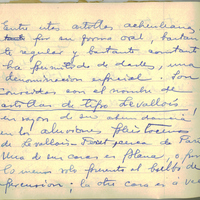 Entre estas astillas acheulianas
por su forma oval, bastan
te regular y bastante constante
ha permitido de darles, una
denominación especial. Son
conocidas con el nombre de
astillas de tipo Levallois
en razón de su abundancia
en los aluviones pleistocenos
de Levallois-Perret, cerca de París
Una de sus caras es plana, o por
lo menos solo presenta el bulbo de
percusión; la otra cara es a ve